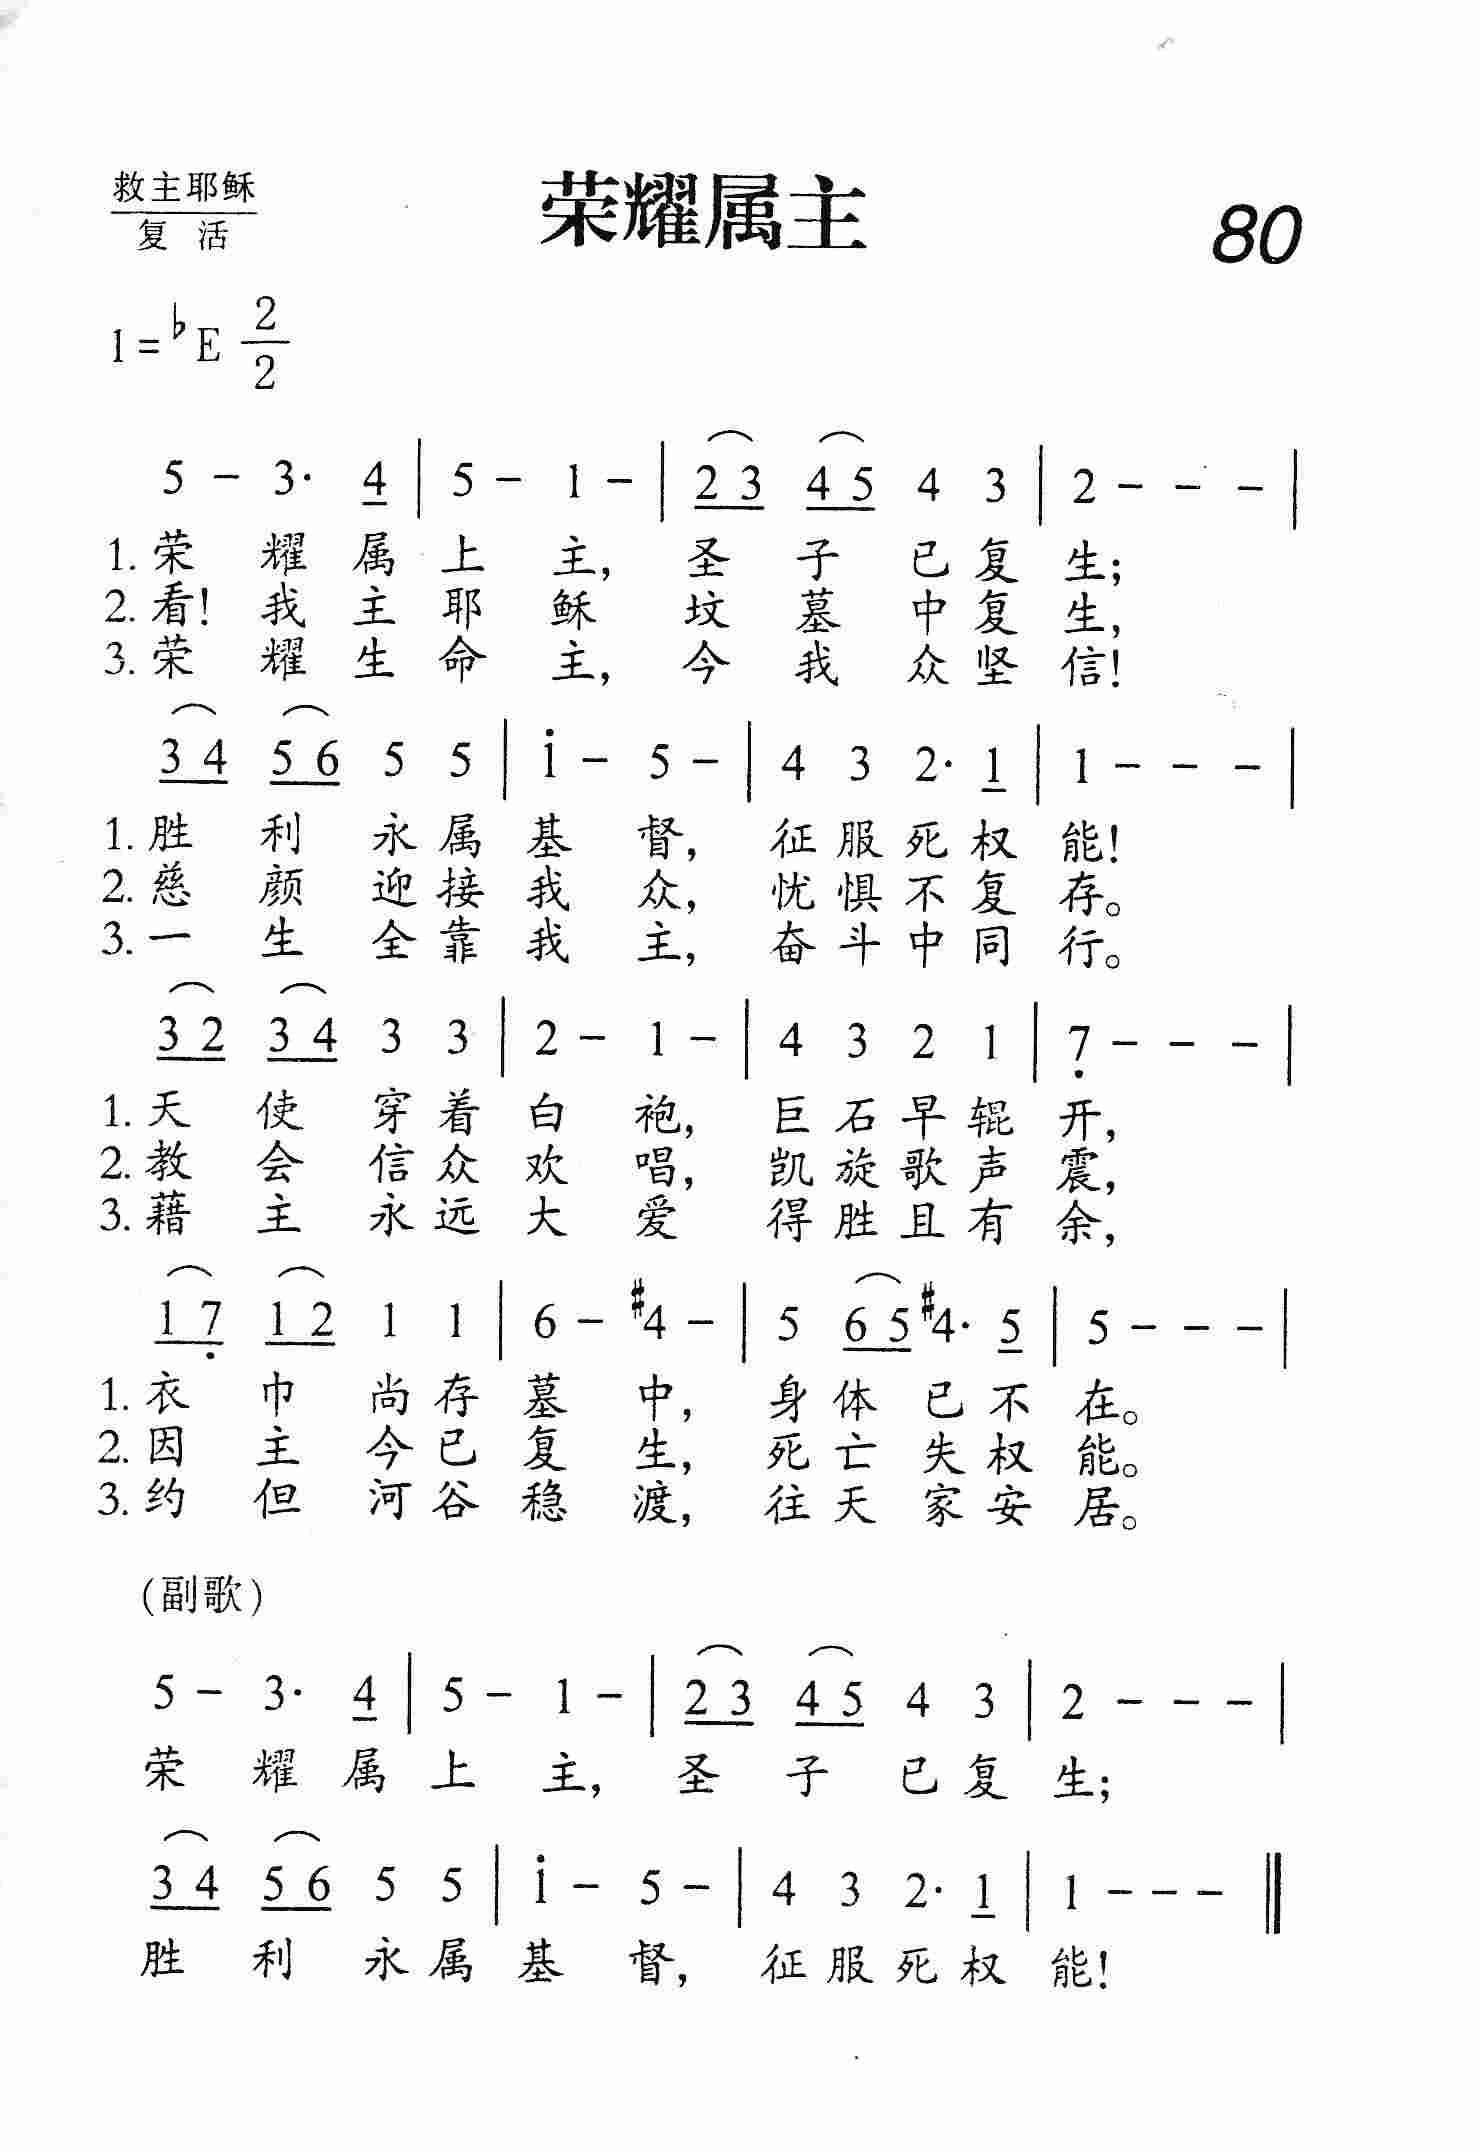 救主耶稣
复 活
荣耀属主
80
1=♭E 2/2
5 - 3· 4 | 5 - 1 - | 2 3 4 5 4 3 | 2 - - - |
1. 荣 耀 属 上 主, 圣 子 已 复 生;
2. 看! 我 主 耶 稣 坟 墓 中 复 生,
3. 荣 耀 生 命 主, 今 我 众 坚 信!
3 4 5 6 5 5 | i - 5 - | 4 3 2· 1 | 1 - - - |
1. 胜 利 永 属 基 督, 征 服 死 权 能!
2. 慈 颜 迎 接 我 众, 忧 惧 不 复 存。
3. 一 生 全 靠 我 主, 奋 斗 中 同 行。
3 2 3 4 3 3 | 2 - 1 - | 4 3 2 1 | 7̣ - - - |
1. 天 使 穿 着 白 袍, 巨 石 早 辊 开,
2. 教 会 信 众 欢 唱, 凯 旋 歌 声 震,
3. 藉 主 永 远 大 爱 得 胜 且 有 余,
1 7̣ 1 2 1 1 | 6 - #4 - | 5 6 5 #4· 5 | 5 - - - |
1. 衣 巾 尚 存 墓 中, 身 体 已 不 在。
2. 因 主 今 已 复 生, 死 亡 失 权 能。
3. 约 但 河 谷 稳 渡, 往 天 家 安 居。
(副歌)
5 - 3· 4 | 5 - 1 - | 2 3 4 5 4 3 | 2 - - - |
荣 耀 属 上 主, 圣 子 已 复 生;
3 4 5 6 5 5 | i - 5 - | 4 3 2· 1 | 1 - - - ‖
胜 利 永 属 基 督, 征 服 死 权 能!